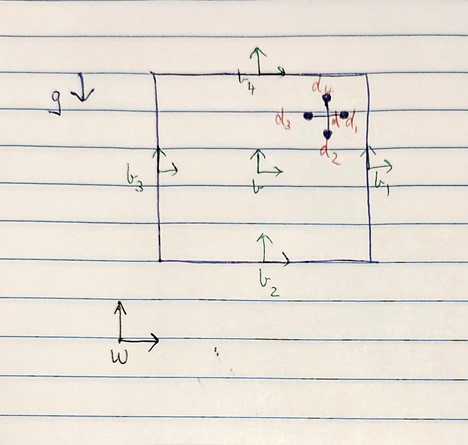 g
b₄
d₄
d₃ d d₁
d₂
b₃ b b₁
b₂
W